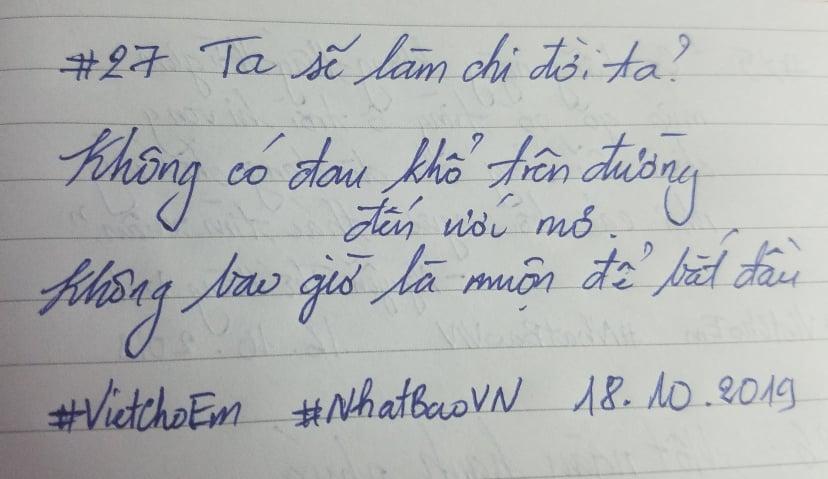 #27 Ta sẽ làm chi đời ta?
Không có đau khổ trên đường
đến ước mơ.
Không bao giờ là muộn để bắt đầu
#VietchoEm #NhatBaoVN 18.10.2019